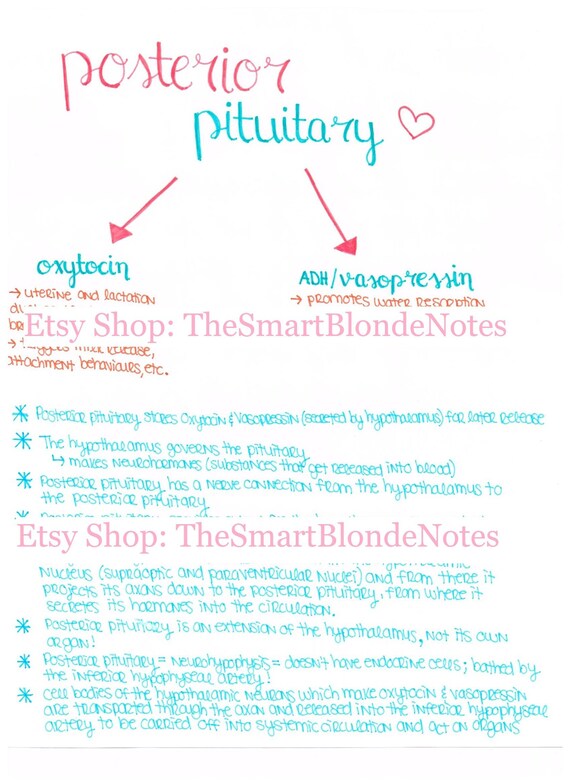 posterior
pituitary
oxytocin
→ uterine and lactation
ADH/vasopressin
→ promotes water resorption
Etsy Shop: TheSmartBlondeNotes
→ release,
attachment behaviours, etc.
* Posterior pituitary stores oxytocin & vasopressin (secreted by hypothalamus) for later release
* The hypothalamus governs the pituitary
↳ makes neurohormones (substances that get released into blood)
* Posterior pituitary has a nerve connection from the hypothalamus to
the posterior pituitary
Etsy Shop: TheSmartBlondeNotes
nucleus (supraoptic and paraventricular nuclei) and from there it
projects its axons down to the posterior pituitary, from where it
secretes its hormones into the circulation.
* Posterior pituitary is an extension of the hypothalamus, not its own
organ!
* Posterior pituitary = neurohypophysis = doesn't have endocrine cells; bathed by
the inferior hypophyseal artery!
* cell bodies of the hypothalamic neurons which make oxytocin & vasopressin
are transported through the axon and released into the inferior hypophyseal
artery to be carried off into systemic circulation and act on organs